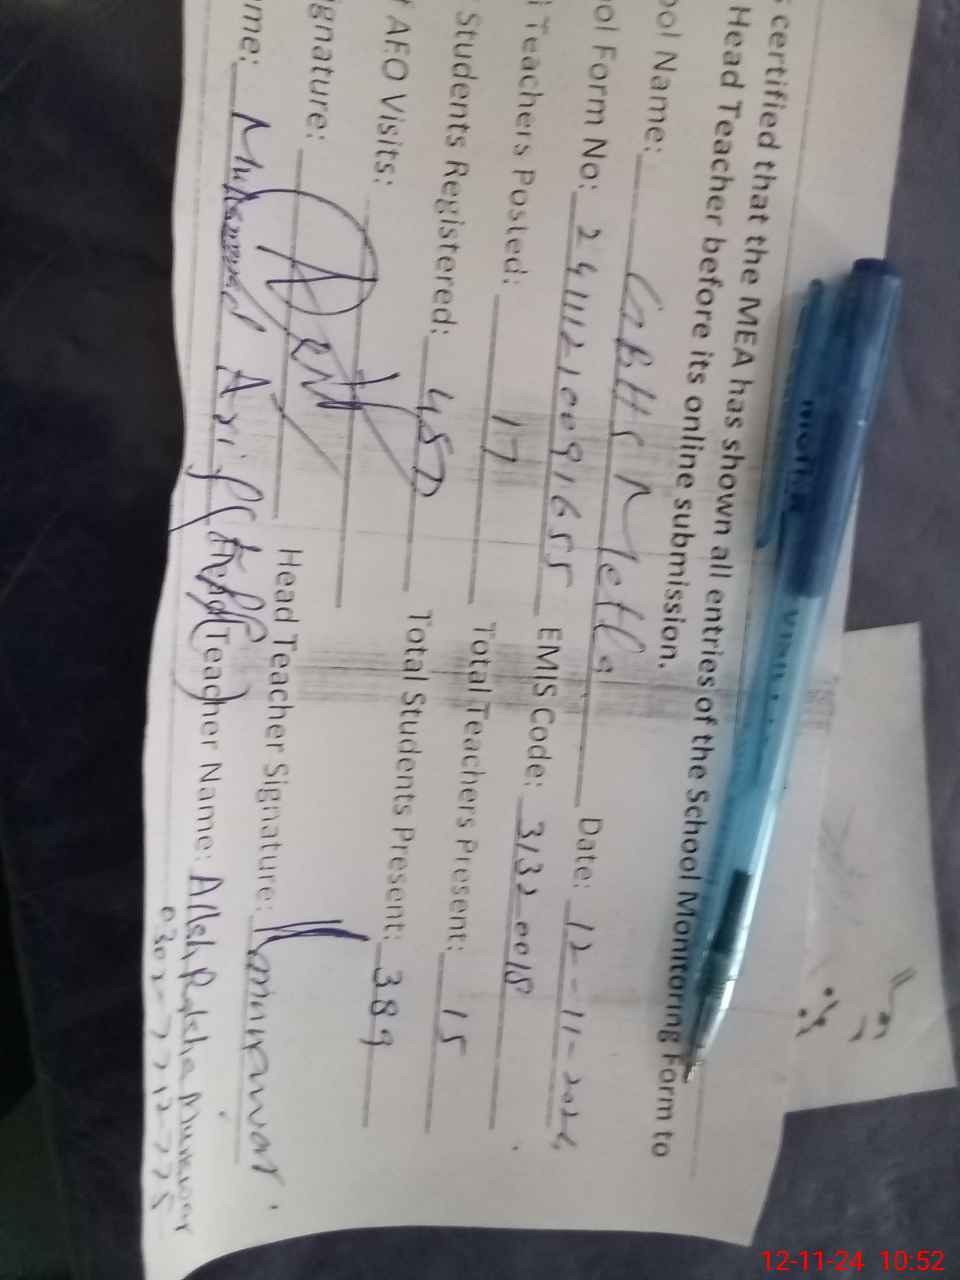 s certified that the MEA has shown all entries of the School Monitoring Form to
Head Teacher before its online submission.
ool Name: GBHS Metla Date: 12-11-2024
ool Form No: 24111210091655 EMIS Code: 31320018
l Teachers Posted: 17 Total Teachers Present: 15
Students Registered: 457 Total Students Present: 389
AEO Visits:
ignature: Head Teacher Signature:
me: Muhammad Arif Head Teacher Name: Allah Rakha Munawar
0302-7712775
12-11-24 10:52